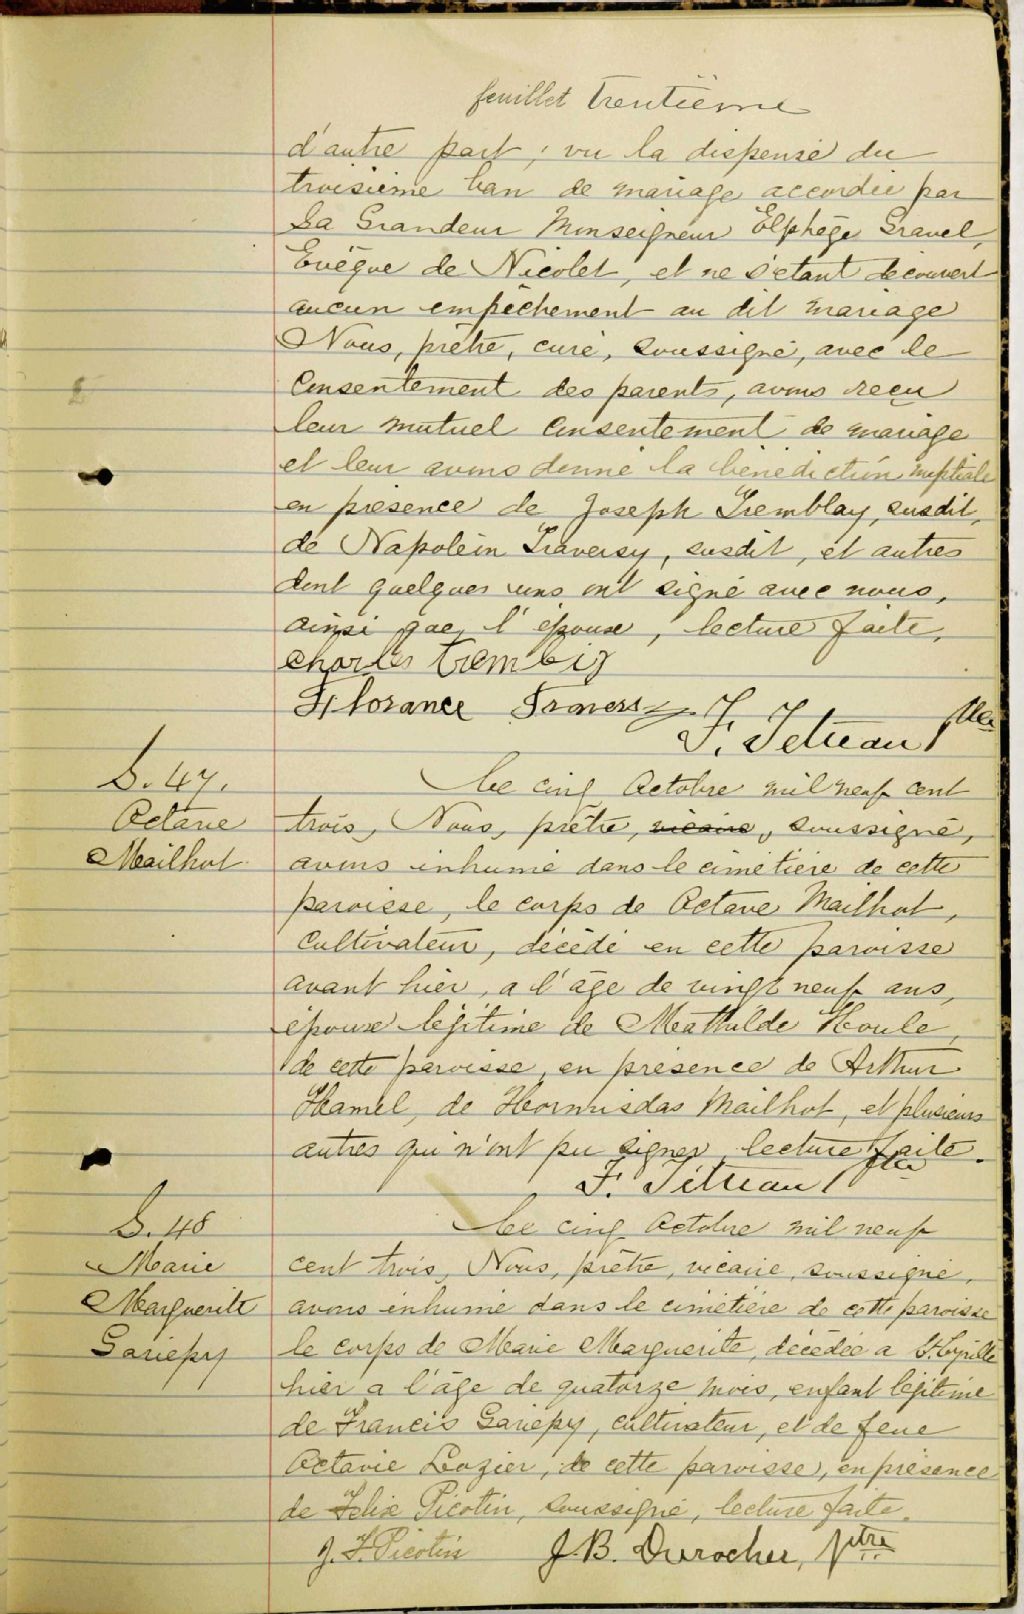 feuillet trentième
d'autre part; vu la dispense du
troisième ban de mariage accordée par
Sa Grandeur Monseigneur Elphège Gravel,
Evêque de Nicolet, et ne s'étant découvert
aucun empêchement au dit mariage
Nous, prêtre, curé, soussigné, avec le
consentement des parents, avons reçu
leur mutuel consentement de mariage
et leur avons donné la bénédiction nuptiale
en présence de Joseph Tremblay, susdit,
de Napoléon Traversy, susdit, et autres
dont quelques uns ont signé avec nous,
ainsi que l'épouse, lecture faite.
Charles Trembly
Florance Traversy
F. Tétreau Ptre
S. 47.
Octave
Mailhot
Le cinq Octobre mil neuf cent
trois, Nous, prêtre, vicaire, soussigné,
avons inhumé dans le cimetière de cette
paroisse, le corps de Octave Mailhot,
cultivateur, décédé en cette paroisse
avant hier, a l'âge de vingt neuf ans,
époux légitime de Mathilde Houle,
de cette paroisse, en présence de Arthur
Hamel, de Hormisdas Mailhot, et plusieurs
autres qui n'ont pu signer, lecture faite.
F. Tétreau Ptre
S. 48
Marie
Marguerite
Gariépy
Le cinq Octobre mil neuf
cent trois, Nous, prêtre, vicaire, soussigné,
avons inhumé dans le cimetière de cette paroisse
le corps de Marie Marguerite, décédée a St. Cyrille
hier a l'âge de quatorze mois, enfant légitime
de Francis Gariépy, cultivateur, et de feue
Octavie Lozier, de cette paroisse, en présence
de Félix Picotin, soussigné, lecture faite.
J. F. Picotin
J. B. Durocher, ptre